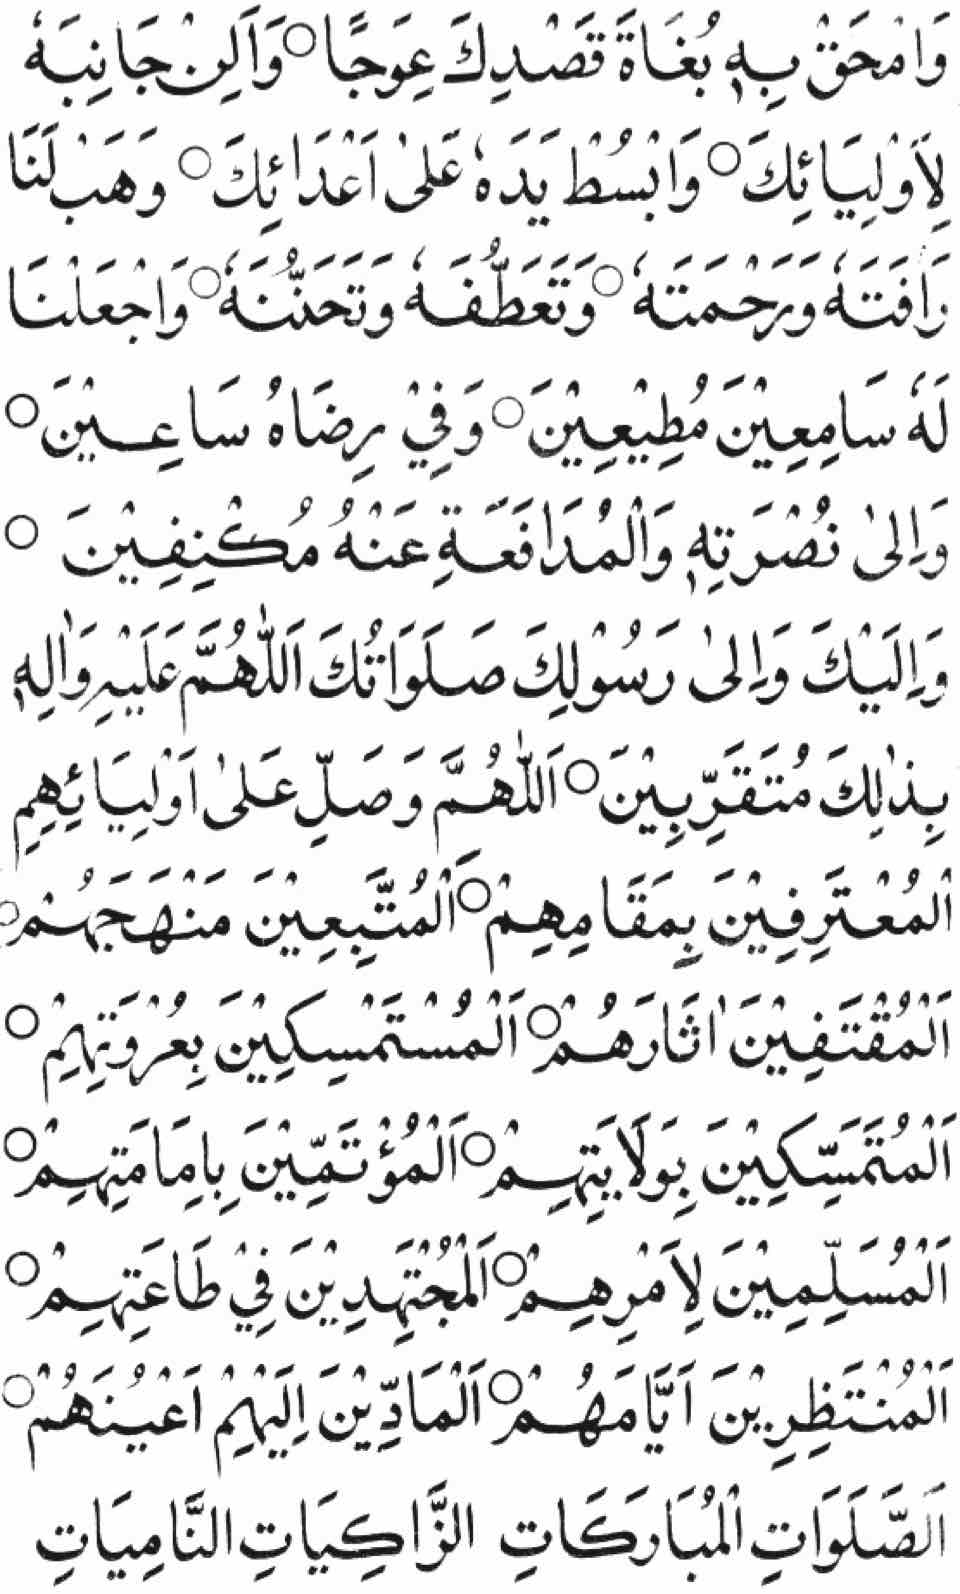 وَامْحَقْ بِهٖ بُغَاةَ قَصْدِكَ عِوَجًا ○ وَاَلِنْ جَانِبَهٗ
لِاَوْلِيَائِكَ ○ وَابْسُطْ يَدَهٗ عَلىٰ اَعْدَائِكَ ○ وَهَبْ لَنَا
رَاْفَتَهٗ وَرَحْمَتَهٗ ○ وَتَعَطُّفَهٗ وَتَحَنُّنَهٗ ○ وَاجْعَلْنَا
لَهٗ سَامِعِيْنَ مُطِيْعِيْنَ ○ وَفِيْ رِضَاهُ سَاعِيْنَ ○
وَاِلىٰ نُصْرَتِهٖ وَالْمُدَافَعَةِ عَنْهُ مُكْنِفِيْنَ ○
وَاِلَيْكَ وَاِلىٰ رَسُوْلِكَ صَلَوَاتُكَ اَللّٰهُمَّ عَلَيْهِ وَاٰلِهٖ
بِذٰلِكَ مُتَقَرِّبِيْنَ ○ اَللّٰهُمَّ وَصَلِّ عَلىٰ اَوْلِيَائِهِمِ
الْمُعْتَرِفِيْنَ بِمَقَامِهِمْ ○ اَلْمُتَّبِعِيْنَ مَنْهَجَهُمْ ○
اَلْمُقْتَفِيْنَ اٰثَارَهُمْ ○ اَلْمُسْتَمْسِكِيْنَ بِعُرْوَتِهِمْ ○
اَلْمُتَمَسِّكِيْنَ بِوَلَايَتِهِمْ ○ اَلْمُؤْتَمِّيْنَ بِاِمَامَتِهِمْ ○
اَلْمُسَلِّمِيْنَ لِاَمْرِهِمْ ○ اَلْمُجْتَهِدِيْنَ فِيْ طَاعَتِهِمْ ○
اَلْمُنْتَظِرِيْنَ اَيَّامَهُمْ ○ اَلْمَادِّيْنَ اِلَيْهِمْ اَعْيُنَهُمْ ○
اَلصَّلَوَاتِ الْمُبَارَكَاتِ الزَّاكِيَاتِ النَّامِيَاتِ